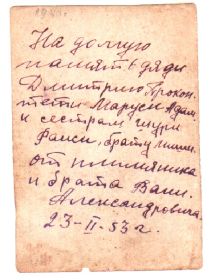 На долгую
память дяди
Дмитрию Прокоп.
тети Маруси Адам.
и сестрам Шуры
Раиси, брату Мише.
от племяника
и брата Вани.
Александровича.
23-II.53 г.